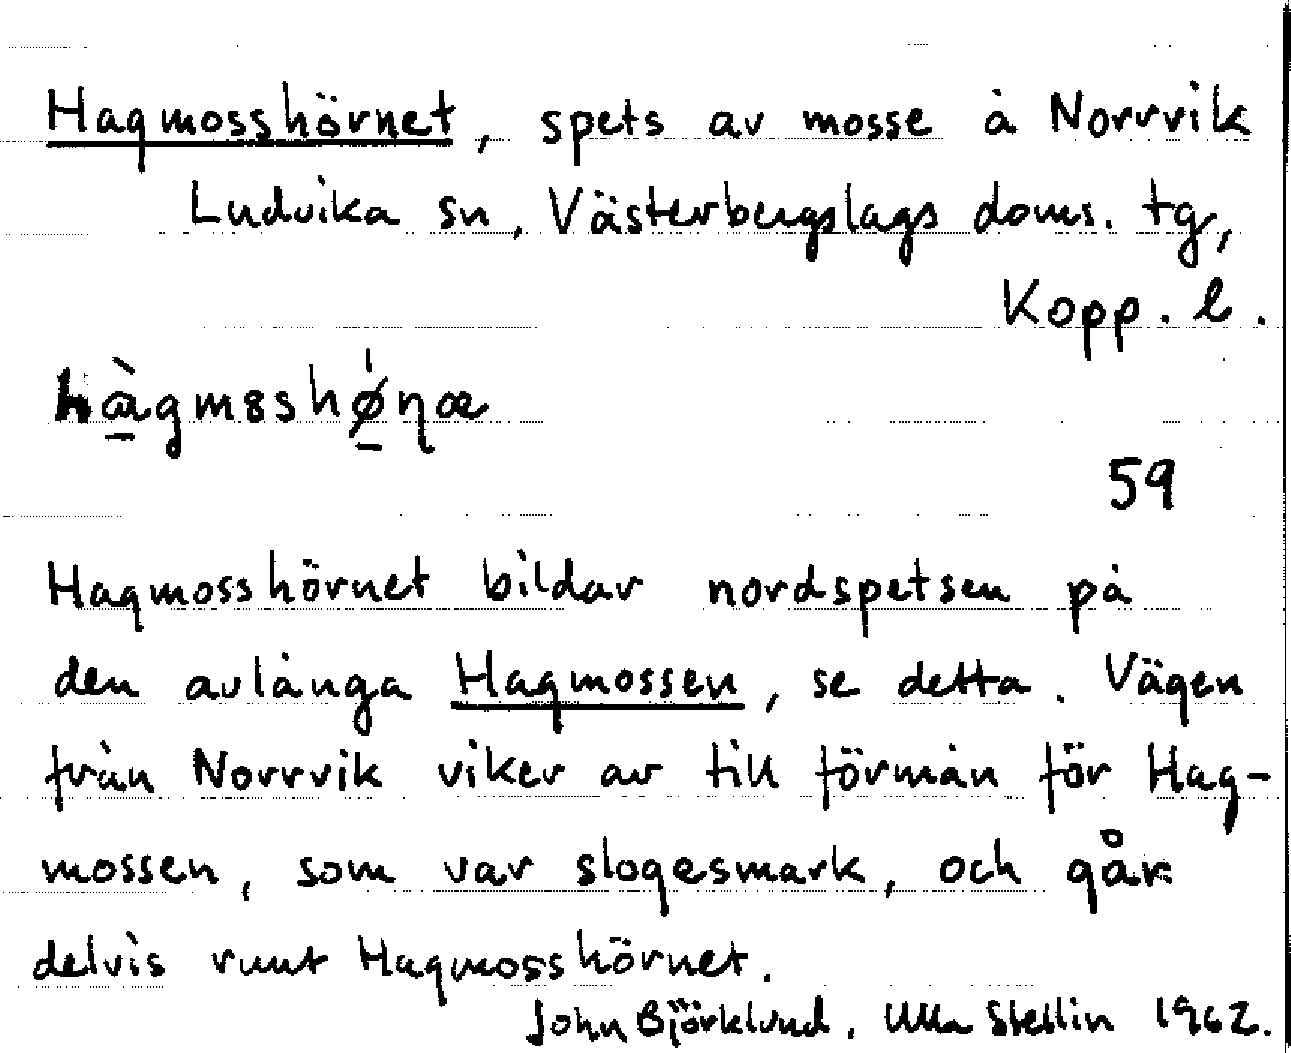 Hagmosshörnet, spets av mosse å Norrvik
Ludvika sn, Västerbergslags doms. tg,
Kopp. l.
59
Hagmosshörnet bildar nordspetsen på
den avlånga Hagmossen, se detta. Vägen
från Norrvik viker av till förmån för Hag-
mossen, som var slogesmark, och går
delvis runt Hagmosshörnet.
John Björklund, Ulla Stellin 1962.